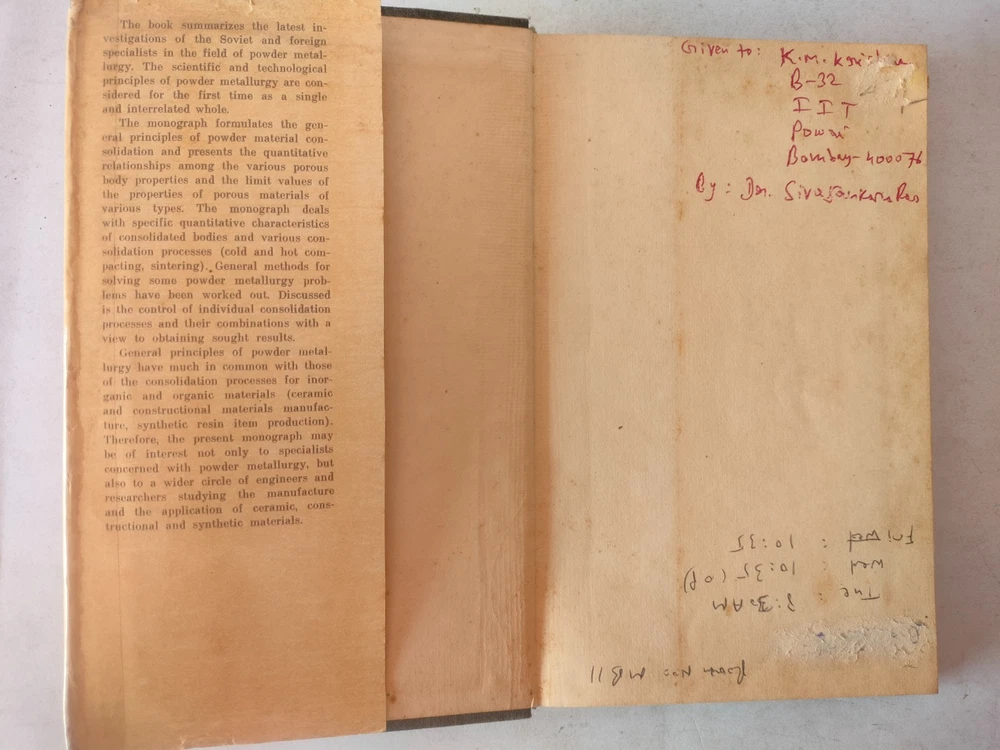 The book summarizes the latest in-
vestigations of the Soviet and foreign
specialists in the field of powder metal-
lurgy. The scientific and technological
principles of powder metallurgy are con-
sidered for the first time as a single
and interrelated whole.
The monograph formulates the gen-
eral principles of powder material con-
solidation and presents the quantitative
relationships among the various porous
body properties and the limit values of
the properties of porous materials of
various types. The monograph deals
with specific quantitative characteristics
of consolidated bodies and various con-
solidation processes (cold and hot com-
pacting, sintering). General methods for
solving some powder metallurgy prob-
lems have been worked out. Discussed
is the control of individual consolidation
processes and their combinations with a
view to obtaining sought results.
General principles of powder metal-
lurgy have much in common with those
of the consolidation processes for inor-
ganic and organic materials (ceramic
and constructional materials manufac-
ture, synthetic resin item production).
Therefore, the present monograph may
be of interest not only to specialists
concerned with powder metallurgy, but
also to a wider circle of engineers and
researchers studying the manufacture
and the application of ceramic, cons-
tructional and synthetic materials.
Given to: K.M.
B-32
IIT
Powai
Bombay-400076
By: Sivasankara Rao
Room No: MB11
Tue : 8:30 AM
Wed : 10:35
Fri : 10:35